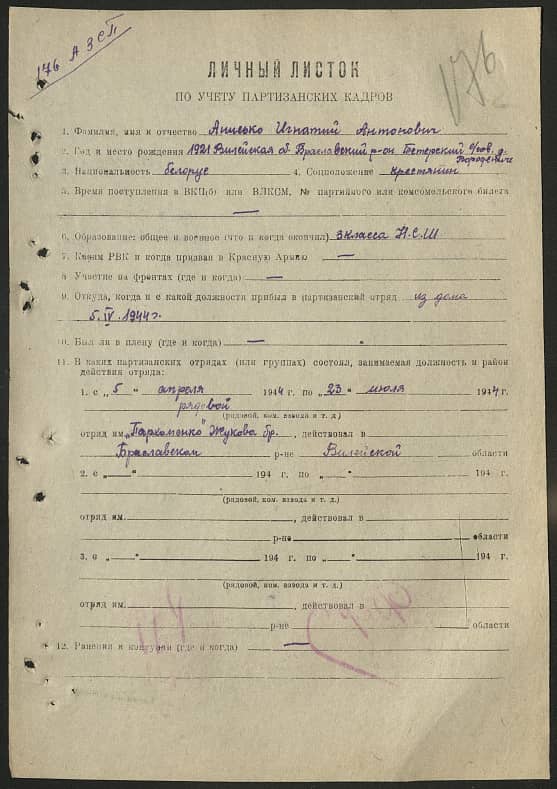 176 А З С П
176
ЛИЧНЫЙ ЛИСТОК
ПО УЧЕТУ ПАРТИЗАНСКИХ КАДРОВ
1. Фамилия, имя и отчество Анисько Игнатий Антонович
2. Год и место рождения 1921 Вилейская об Браславский р-он с/сов. д.
3. Национальность белорус 4. Соцположение крестянин
5. Время поступления в ВКП(б) или ВЛКСМ, № партийного или комсомольского билета
—
6. Образование: общее и военное (что и когда окончил) 3 класса Н.С.Ш
7. Каким РВК и когда призван в Красную Армию —
8. Участие на фронтах (где и когда) —
9. Откуда, когда и с какой должности прибыл в партизанский отряд из дома
5.IV.1944г.
10. Был ли в плену (где и когда) —
11. В каких партизанских отрядах (или группах) состоял, занимаемая должность и район
действия отряда:
1. с „5“ апреля 1944 г. по „23“ июля 1944 г.
рядовой
(рядовой, ком. взвода и т. д.)
отряд им. „Пархоменко“ Жукова бр., действовал в
Браславском р-не Вилейской области
2. с „ “ 194 г. по „ “ 194 г.
(рядовой, ком. взвода и т. д.)
отряд им. , действовал в
р-не области
3. с „ “ 194 г. по „ “ 194 г.
(рядовой, ком. взвода и т. д.)
отряд им. , действовал в
р-не области
12. Ранения и контузии (где и когда) —